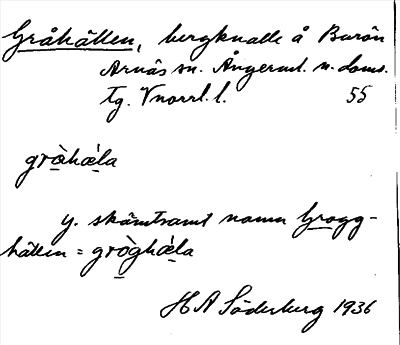 Gråhällen, bergknalle å Barön
Arnäs sn. Ångerml. n. doms.
tg. Vnorrl. l. 55
grò̱hǽ̱la
y. skämtsamt namn Grogg-
hällen = grò̱ghǽ̱la
H A Söderberg 1936